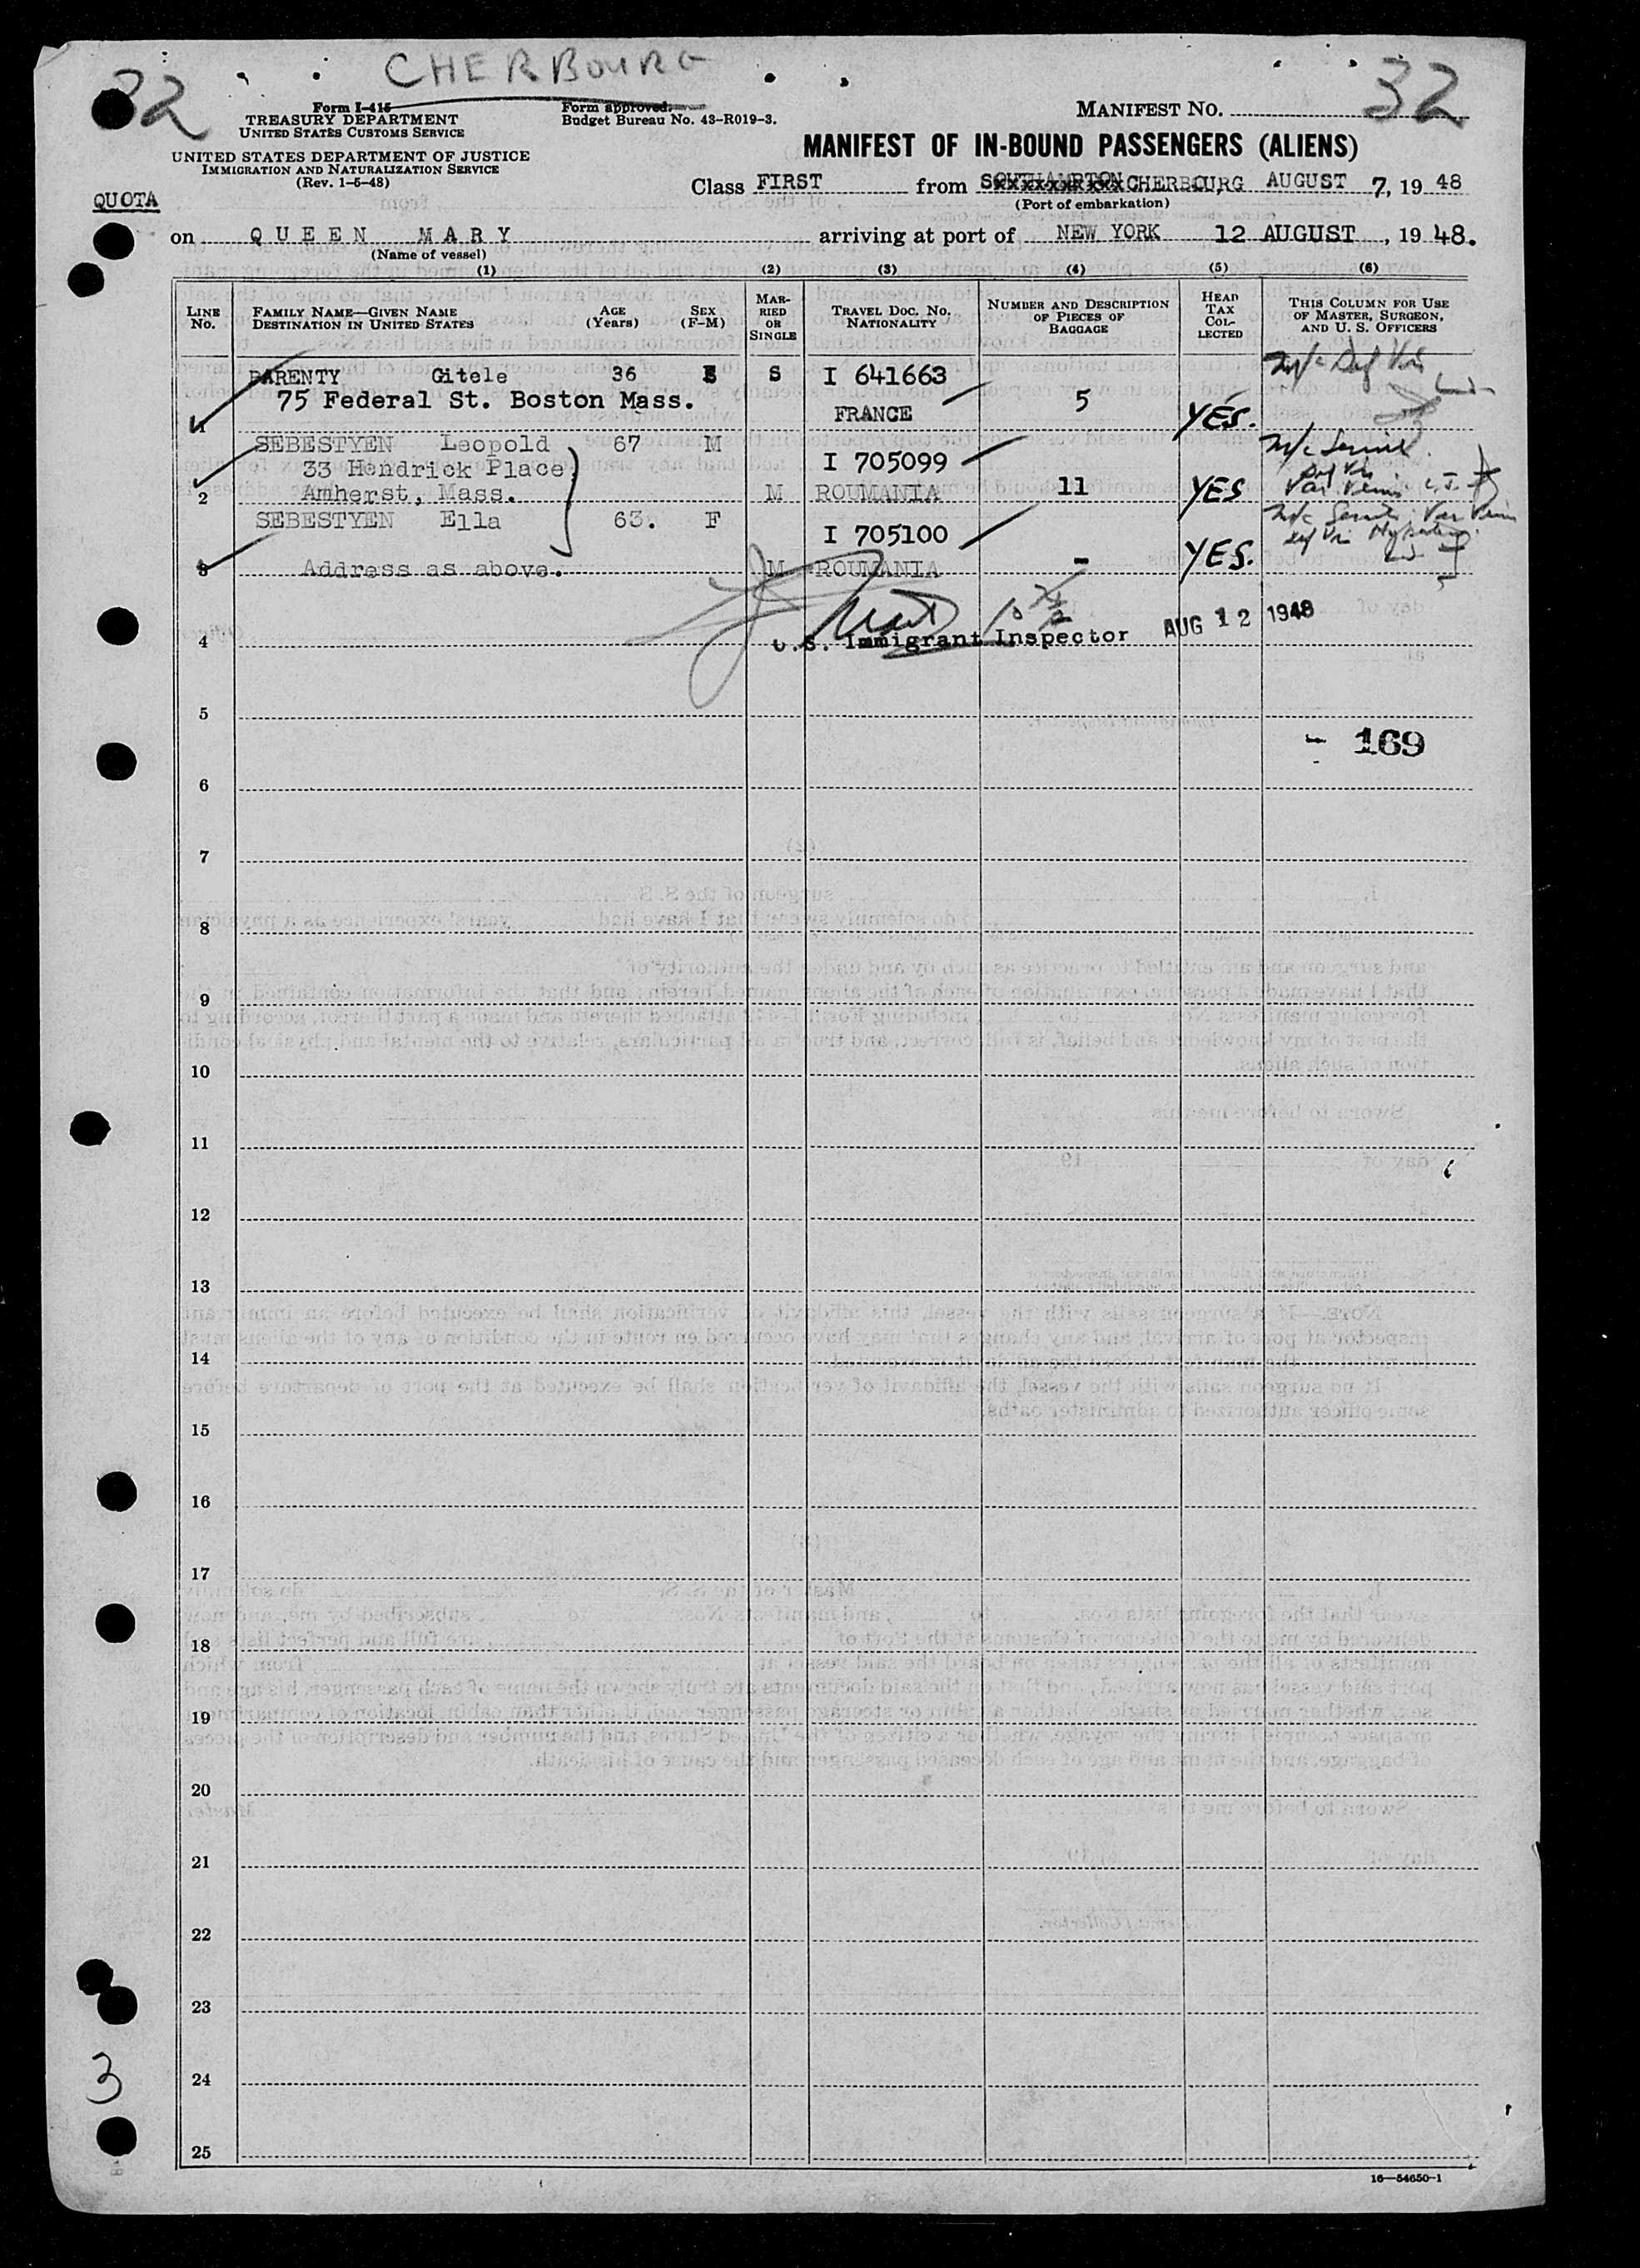 CHERBOURG
32
32
Form I-415
TREASURY DEPARTMENT
UNITED STATES CUSTOMS SERVICE
Form approved.
Budget Bureau No. 43-R019-3.
MANIFEST NO.
UNITED STATES DEPARTMENT OF JUSTICE
IMMIGRATION AND NATURALIZATION SERVICE
(Rev. 1-5-48)
MANIFEST OF IN-BOUND PASSENGERS (ALIENS)
QUOTA
Class FIRST from SOUTHAMPTON CHERBOURG AUGUST 7, 19 48
(Port of embarkation)
on QUEEN MARY arriving at port of NEW YORK 12 AUGUST, 19 48.
(Name of vessel)
(1) (2) (3) (4) (5) (6)
LINE No.
FAMILY NAME—GIVEN NAME
DESTINATION IN UNITED STATES
AGE (Years)
SEX (F-M)
MARRIED OR SINGLE
TRAVEL DOC. NO. NATIONALITY
NUMBER AND DESCRIPTION OF PIECES OF BAGGAGE
HEAD TAX COLLECTED
THIS COLUMN FOR USE OF MASTER, SURGEON, AND U. S. OFFICERS
PARENTY Gitele 36 S I 641663
75 Federal St. Boston Mass.
1 FRANCE 5 YES.
SEBESTYEN Leopold 67 M
33 Hendrick Place, I 705099
2 Amherst, Mass. M ROUMANIA 11 YES
SEBESTYEN Ella 63. F
I 705100
3 Address as above. M ROUMANIA - YES.
4 U.S. Immigrant Inspector AUG 12 1948
5
- 169
6
7
8
9
10
11
12
13
14
15
16
17
18
19
20
21
22
23
24
3
25
16—54650-1